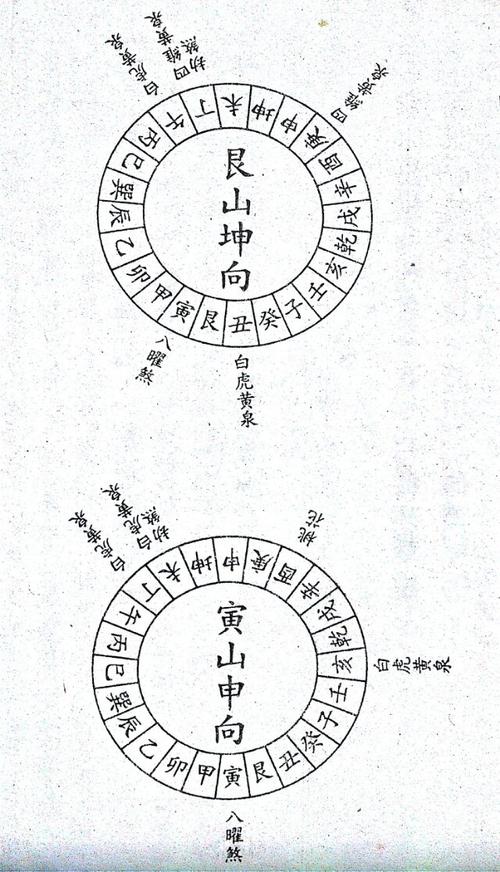 白虎黄泉
四維黄泉
劫煞
四維黄泉
丁
未
坤
申
庚
酉
辛
戌
乾
亥
壬
子
癸
丑
艮
寅
甲
卯
乙
辰
巽
巳
丙
午
艮山坤向
八曜煞
白虎黄泉
白虎黄泉
白虎黄泉
劫煞
桃花
申
庚
酉
辛
戌
乾
亥
壬
子
癸
丑
艮
寅
甲
卯
乙
辰
巽
巳
丙
午
丁
未
坤
寅山申向
白虎黄泉
八曜煞